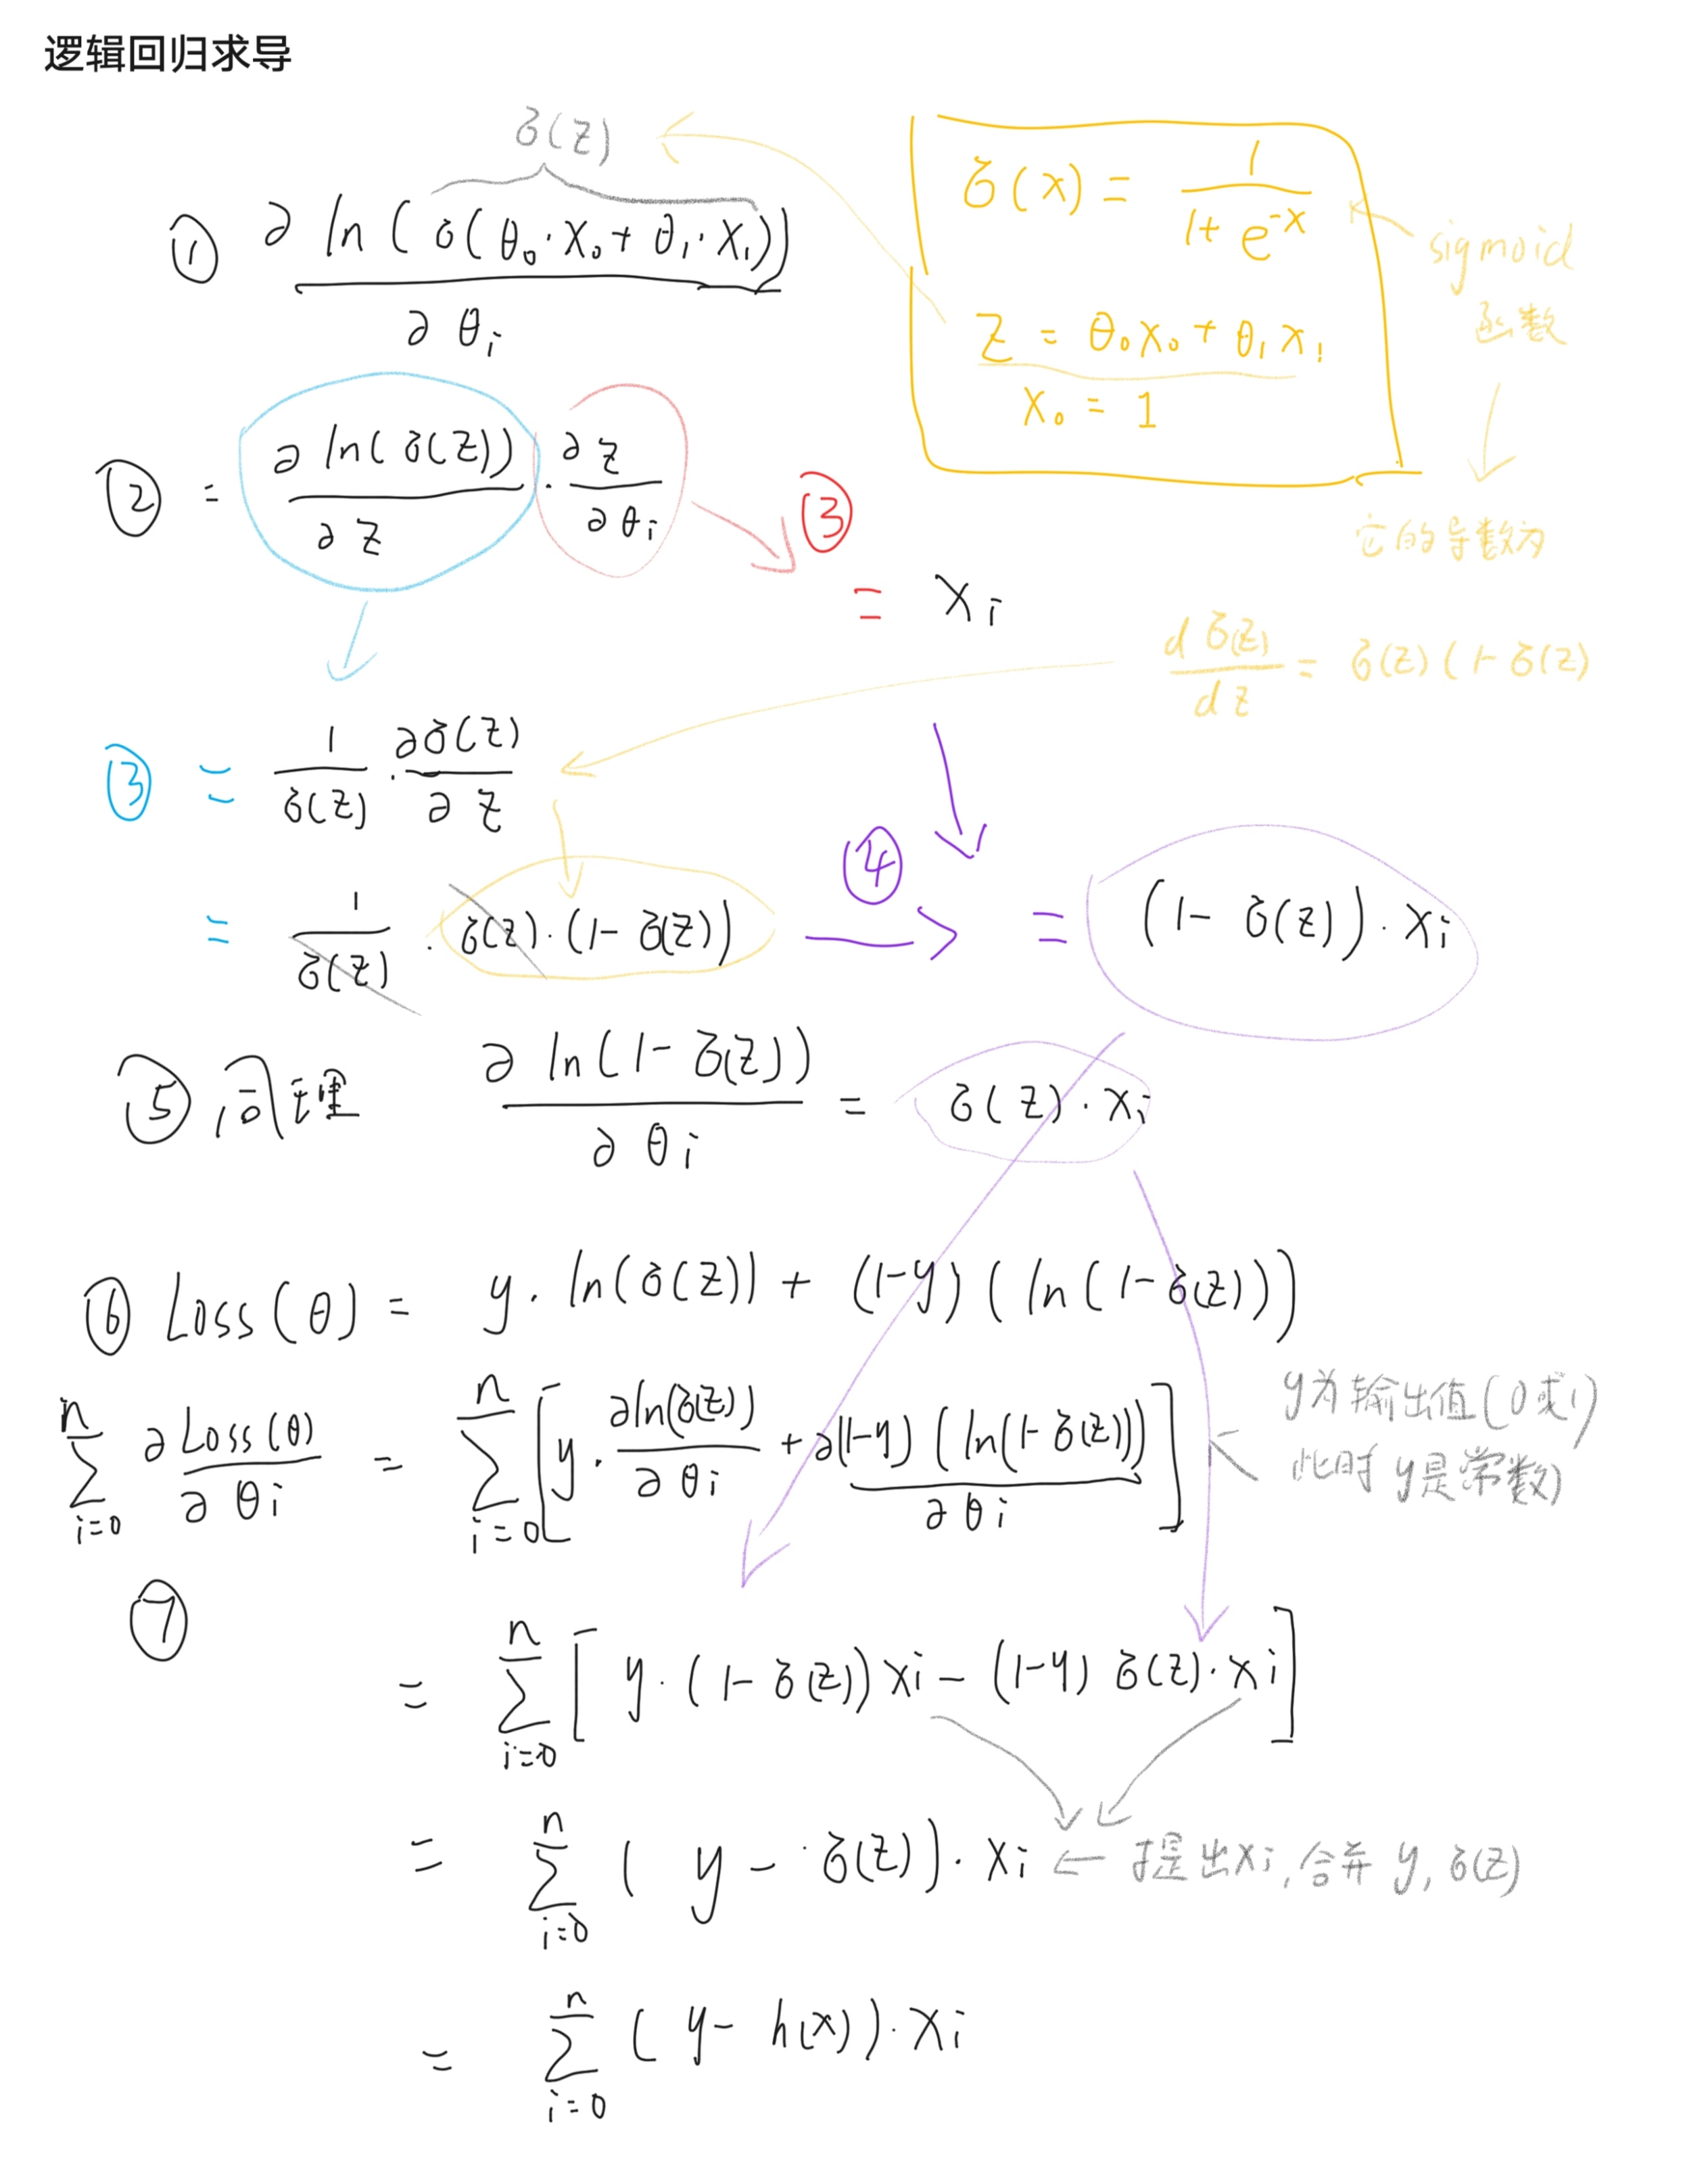 逻辑回归求导
σ(z)
① ∂ ln(σ(θ₀·x₀+θ₁·x₁)) / ∂θi
σ(x) = 1 / (1+e^-x)
sigmoid
函数
z = θ₀x₀+θ₁x₁
x₀ = 1
② = ∂ ln(σ(z)) / ∂z · ∂z / ∂θi
③ = xi
它的导数为
dσ(z) / dz = σ(z)(1-σ(z)
③ = 1 / σ(z) · ∂σ(z) / ∂z
= 1 / σ(z) · σ(z)·(1-σ(z)) ④ = (1-σ(z))·xi
⑤ 同理 ∂ ln(1-σ(z)) / ∂θi = σ(z)·xi
⑥ Loss(θ) = y·ln(σ(z)) + (1-y)(ln(1-σ(z)))
y为输出值(0或1)
此时y是常数)
∑_{i=0}^{n} ∂Loss(θ) / ∂θi = ∑_{i=0}^{n} [y·∂ln(σ(z)) / ∂θi + ∂(1-y)(ln(1-σ(z))) / ∂θi]
⑦
= ∑_{i=0}^{n} [y·(1-σ(z))xi - (1-y)σ(z)·xi]
= ∑_{i=0}^{n} (y-σ(z))·xi ← 提出xi,合并y,σ(z)
= ∑_{i=0}^{n} (y-h(x))·xi